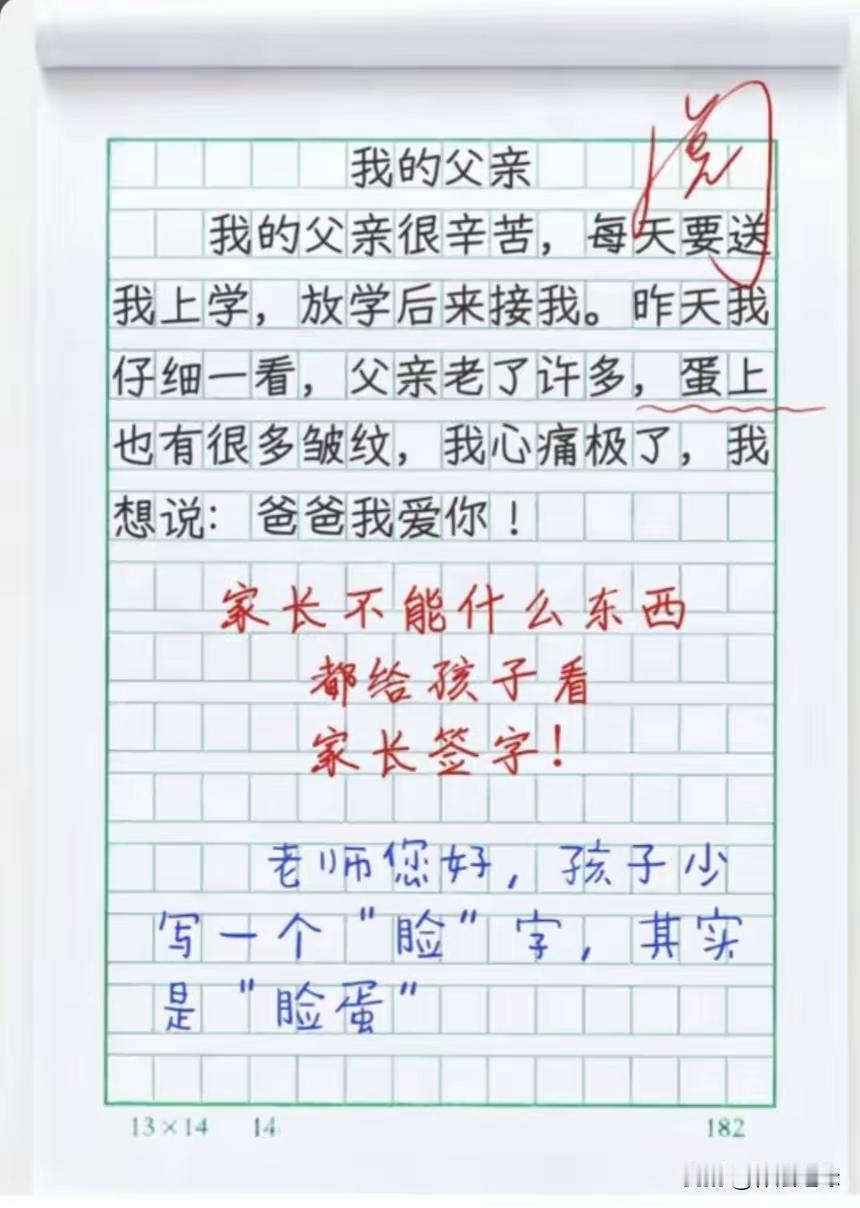 我的父亲
阅
我的父亲很辛苦，每天要送
我上学，放学后来接我。昨天我
仔细一看，父亲老了许多，蛋上
也有很多皱纹，我心痛极了，我
想说：爸爸我爱你！
家长不能什么东西
都给孩子看
家长签字！
老师您好，孩子少
写一个“脸”字，其实
是“脸蛋”
13×14 14 182